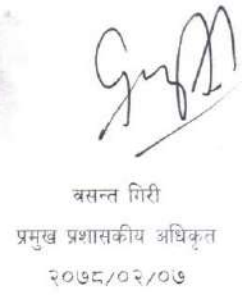 बसन्त गिरी
प्रमुख प्रशासकीय अधिकृत
२०७८/०२/०७